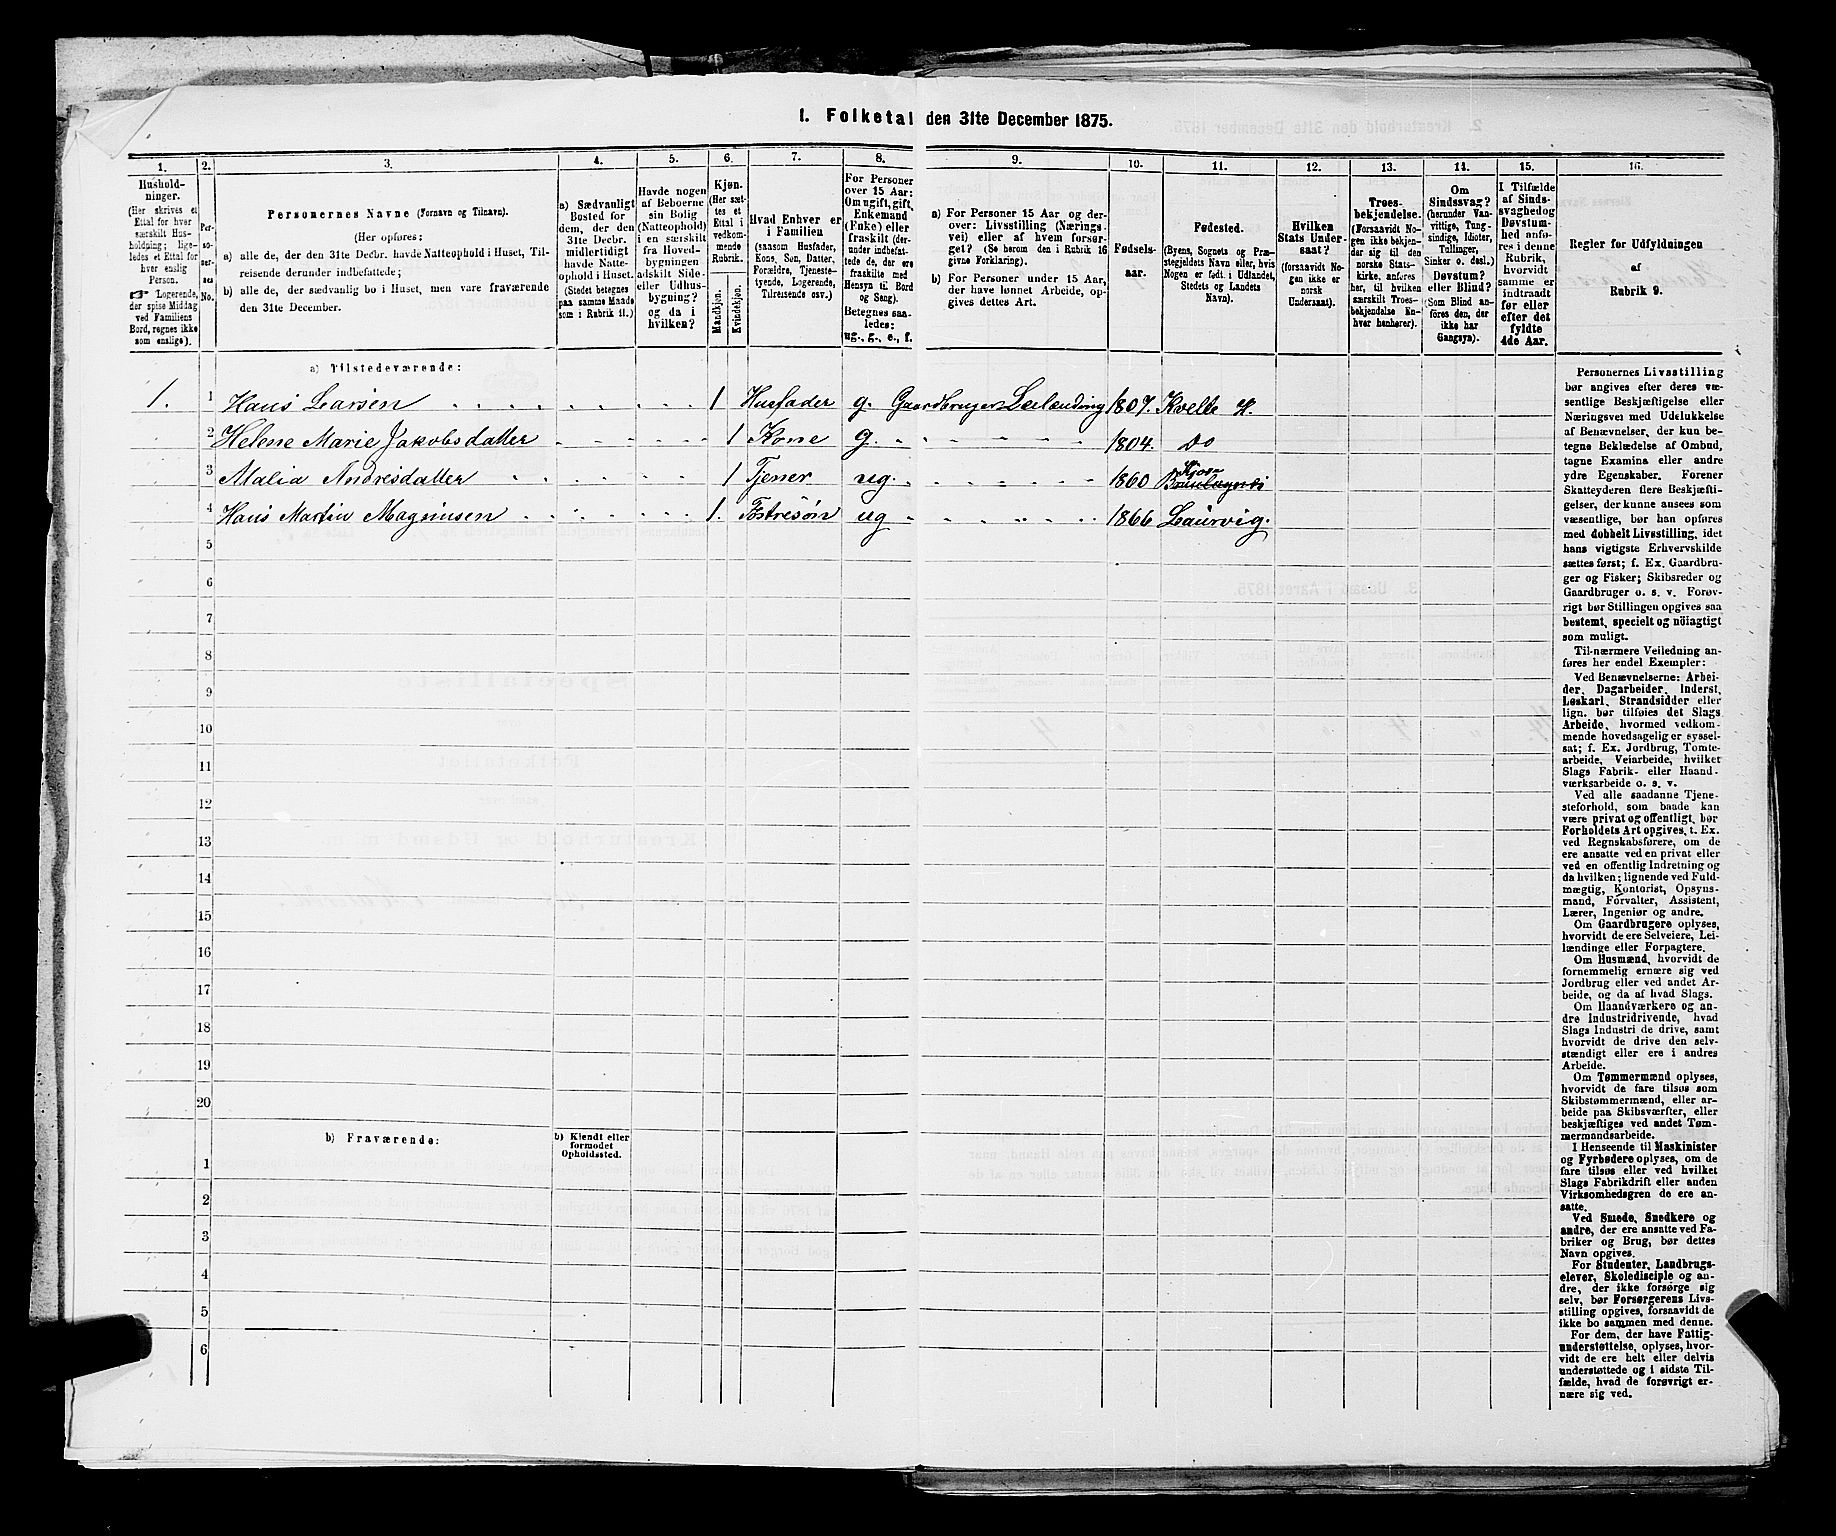 I. Folketal den 31te December 1875.
1. 2. 3. 4. 5. 6. 7. 8. 9. 10. 11. 12. 13. 14. 15. 16.
Husholdninger.
(Her skrives et
Ettal for hver
særskilt Husholdning;
ligeledes et Ettal for
hver enslig
Person.
☞ Logerende,
der spise Middag
ved Familiens
Bord, regnes ikke
som enslige).
Personernes No.
Personernes Navne (Fornavn og Tilnavn).
(Her opføres:
a) alle de, der den 31te Decbr. havde Natteophold i Huset, Tilreisende
derunder indbefattede;
b) alle de, der sædvanlig bo i Huset, men vare fraværende
den 31te December.
a) Sædvanligt
Bosted for
dem, der den
31te Decbr.
midlertidigt
havde Natteophold
i Huset.
(Stedet betegnes
paa samme Maade
som i Rubrik 11.)
Havde nogen
af Beboerne
sin Bolig
(Natteophold)
i en særskilt
fra Hovedbygningen
adskilt Side-
eller Udhusbygning?
og da i
hvilken?
Kjøn.
(Her sættes
et
Ettal i
vedkommende
Rubrik.
Mandkjøn.
Kvindekjøn.
Hvad Enhver er
i Familien
(saasom Husfader,
Kone, Søn, Datter,
Forældre, Tjenestetyende,
Logerende,
Tilreisende osv.)
For Personer
over 15 Aar:
Om ugift, gift,
Enkemand
(Enke) eller
fraskilt (derunder
indbefattede
de, der ere
fraskilte med
Hensyn til Bord
og Seng).
Betegnes saaledes:
ug., g., e., f.
a) For Personer 15 Aar og derover:
Livsstilling (Næringsvei)
eller af hvem forsørget?
(Se herom den i Rubrik 16
givne Forklaring).
b) For Personer under 15 Aar,
der have lønnet Arbeide, opgives
dettes Art.
Fødselsaar.
Fødested.
(Byens, Sognets og Præstegjeldets
Navn eller, hvis
Nogen er født i Udlandet,
Stedets og Landets
Navn).
Hvilken
Stats Undersaat?
(forsaavidt Nogen
ikke er
norsk
Undersaat).
Troesbekjendelse.
(Forsaavidt Nogen
ikke bekjender
sig til den
norske Statskirke,
anføres
her, til hvilken
særskilt Troesbekjendelse
Enhver
henhører).
Om
Sindssvag?
(herunder Vanvittige,
Tungsindige,
Idioter,
Tullinger,
Sinker o. desl.)
Døvstum?
eller Blind?
(Som Blind anføres
den, der
ikke har
Gangsyn).
I Tilfælde
af Sindssvaghed
og
Døvstumhed
anføres
i denne
Rubrik,
hvorvidt
samme er
indtraadt
før eller
efter det
fyldte
4de Aar.
Regler for Udfyldningen
af
Rubrik 9.
a) Tilstedeværende:
1. 1 Hans Larsen 1 Husfader g. Gaardbruger Leilænding 1807. Kvelle H.
2 Helene Marie Jakobsdatter 1 Kone g. 1804. Do
3 Malia Andresdatter 1 Tjener ug. 1860
4 Hans Martin Magnusen 1. Fostresøn ug 1866 Laurvig.
5
6
7
8
9
10
11
12
13
14
15
16
17
18
19
20
b) Fraværende:
b) Kjendt eller
formodet
Opholdssted.
1
2
3
4
5
6
Personernes Livsstilling
bør angives efter deres væsentlige
Beskjæftigelse eller
Næringsvei med Udelukkelse
af Benævnelser, der kun betegne
Beklædelse af Ombud,
tagne Examina eller andre
ydre Egenskaber. Forener
Skatteyderen flere Beskjæftigelser,
der kunne ansees som
væsentlige, bør han opføres
med dobbelt Livsstilling, idet
hans vigtigste Erhvervskilde
sættes først; f. Ex. Gaardbruger
og Fisker; Skibsreder og
Gaardbruger o. s. v. Forøvrigt
bør Stillingen opgives saa
bestemt, specielt og nöiagtigt
som muligt.
Til nærmere Veiledning anføres
her endel Exempler:
Ved Benævnelserne: Arbeider,
Dagarbeider, Inderst,
Løskarl, Strandsidder eller
lign. bør tilføies det Slags
Arbeide, hvormed vedkommende
hovedsagelig er sysselsat;
f. Ex. Jordbrug, Tomtearbeide,
Veiarbeide, hvilket
Slags Fabrik- eller Haandværksarbeide
o. s. v.
Ved alle saadanne Tjenesteforhold,
som baade kan
være privat og offentligt, bør
Forholdets Art opgives, t. Ex.
ved Regnskabsførere, om de
ere ansatte ved en privat eller
ved en offentlig Indretning og
da hvilken; lignende ved Fuldmægtig,
Kontorist, Opsynsmand,
Forvalter, Assistent,
Lærer, Ingeniør og andre.
Om Gaardbrugere oplyses,
hvorvidt de ere Selveiere, Leilændinge
eller Forpagtere.
Om Husmænd, hvorvidt de
fornemmelig ernære sig ved
Jordbrug eller ved andet Arbeide,
og da af hvad Slags.
Om Haandværkere og andre
Industridrivende, hvad
Slags Industri de drive, samt
hvorvidt de drive den selvstændigt
eller ere i andres
Arbeide.
Om Tømmermænd oplyses,
hvorvidt de fare tilsøs som
Skibstømmermænd, eller arbeide
paa Skibsværfter, eller
beskjæftiges ved andet Tømmermandsarbeide.
I Henseende til Maskinister
og Fyrbødere oplyses, om de
fare tilsøs eller ved hvilket
Slags Fabrikdrift eller anden
Virksomhedsgren de ere ansatte.
Ved Smede, Snedkere og
andre, der ere ansatte ved Fabriker
og Brug, bør dettes
Navn opgives.
For Studenter, Landbrugselever,
Skoledisciple og andre,
der ikke forsørge sig
selv, bør Forsørgerens Livsstilling
opgives, forsaavidt de
ikke bo sammen med denne.
For dem, der have Fattigunderstøttelse,
oplyses, hvorvidt
de ere helt eller delvis
understøttede og i sidste Tilfælde,
hvad de forøvrigt ernære
sig ved.